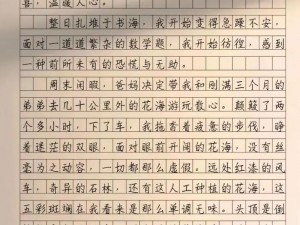 喜，温暖人心。
整日扎堆于书海，我开始变得急躁不安，
面对一道道繁杂的数学题，我开始彷徨，感到
一种前所未有的恐慌与无助。
周末闲暇，爸妈决定带我和刚满三个月的
弟弟去几十公里外的花海游玩散心。颠簸了两
个多小时，下了车，我拖着疲惫的步伐，睁
着迷茫的双眼，面对眼前开阔的花海，没有丝
毫为之动容，一切都那么虚假。远处红漆的风
车，奇异的石林，还有这人工种植的花海，这
五彩斑斓在我看来是那么单调无味。头顶是倒